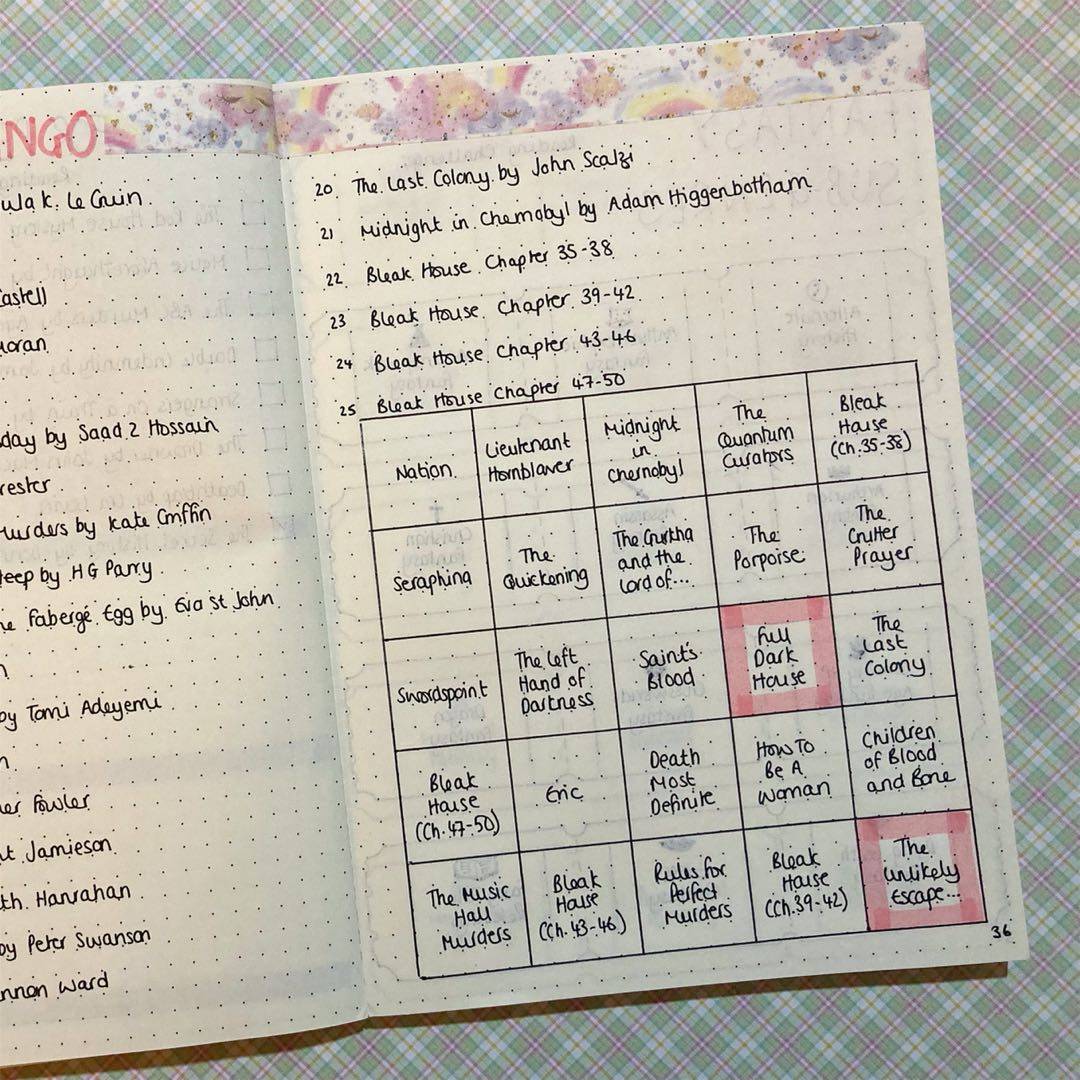 NGO
Le Guin.
astell
oran
day by Saad Z Hossain
rester
Murders by Kate Griffin
eep by HG Parry.
he Fabergé Egg by Eva St John
n
by Tomi Adeyemi
n
her Fowler
t Jamieson
th Hanrahan
by Peter Swanson
nnon Ward
20 The Last Colony by John Scalzi
21 Midnight in Chernobyl by Adam Higgenbotham
22 Bleak House Chapter 35-38
23 Bleak House Chapter 39-42
24 Bleak House Chapter 43-46
25 Bleak House Chapter 47-50
Nation
Lieutenant
Hornblower
Midnight
in
Chernobyl
The
Quantum
Curators
Bleak
House
(Ch.35-38)
Seraphina
The
Quickening
The Gurkha
and the
Lord of...
The
Porpoise
The
Crutter
Prayer
Swordspoint
The Left
Hand of
Darkness
Saint's
Blood
Full
Dark
House
The
Last
Colony
Bleak
House
(Ch.47-50)
Eric
Death
Most
Definite
How To
Be A
Woman
Children
of Blood
and Bone
The Music
Hall
Murders
Bleak
House
(Ch.43-46)
Rules for
Perfect
Murders
Bleak
House
(Ch.39-42)
The
Unlikely
Escape...
36